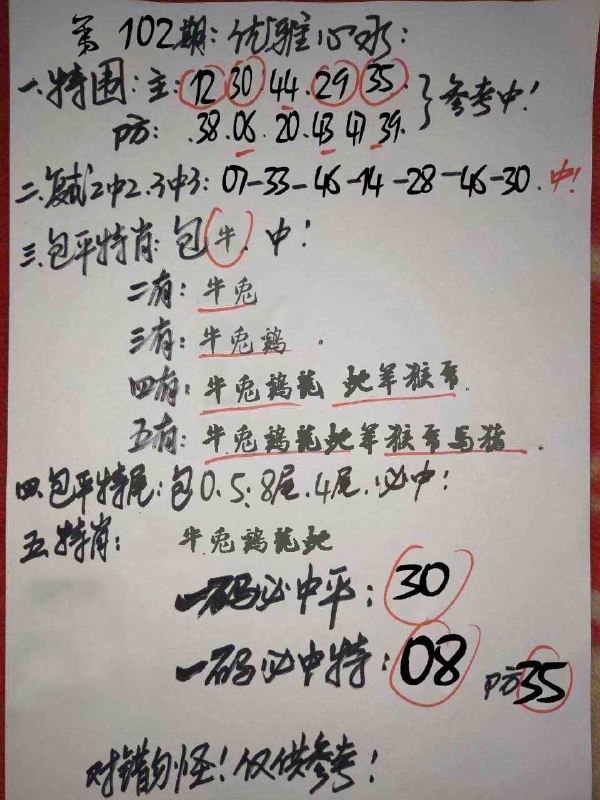 第102期：优雅心水：
一.特围：主：12 30.44.29 35.
防：.38.06.20.43 47 39. }参考中！
二.复试2中2.3中3：07-33-46-14-28-46-30.中！
三.包平特肖：包牛.中！
二有：牛兔
三有：牛兔鸡.
四有：牛兔鸡龙 蛇羊猴
五有：牛兔鸡龙蛇羊猴 马猪.
四.包平特尾：包0.5.8尾.4尾.必中！
五.特肖： 牛兔鸡龙蛇
一码必中平：30
一码必中特：08 防35
对错勿怪！仅供参考！